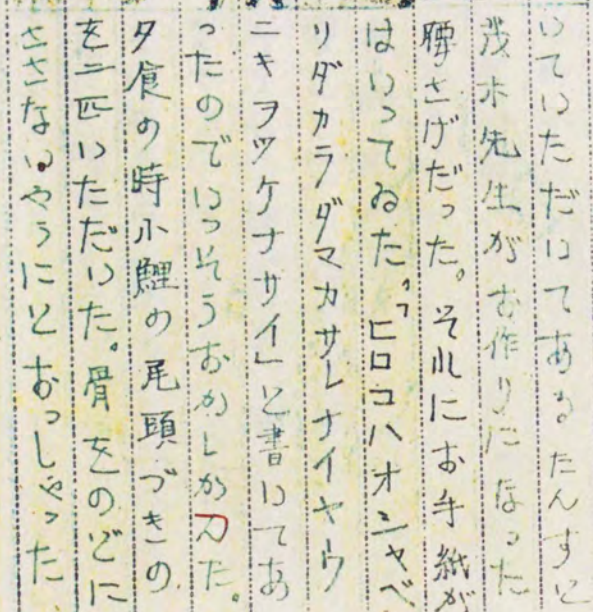 いていただいてあるたんすと
茂木先生がお作りになった
腰さげだった。それにお手紙が
はいってゐた。「ヒロコハオシャベ
リダカラダマカサレナイヤウ
ニキヲツケナサイ」と書いてあ
ったのでいっそうおかしかった。
夕食の時小鯉の尾頭づきの
を二匹いただいた。骨をのどに
ささないやうにとおっしゃった